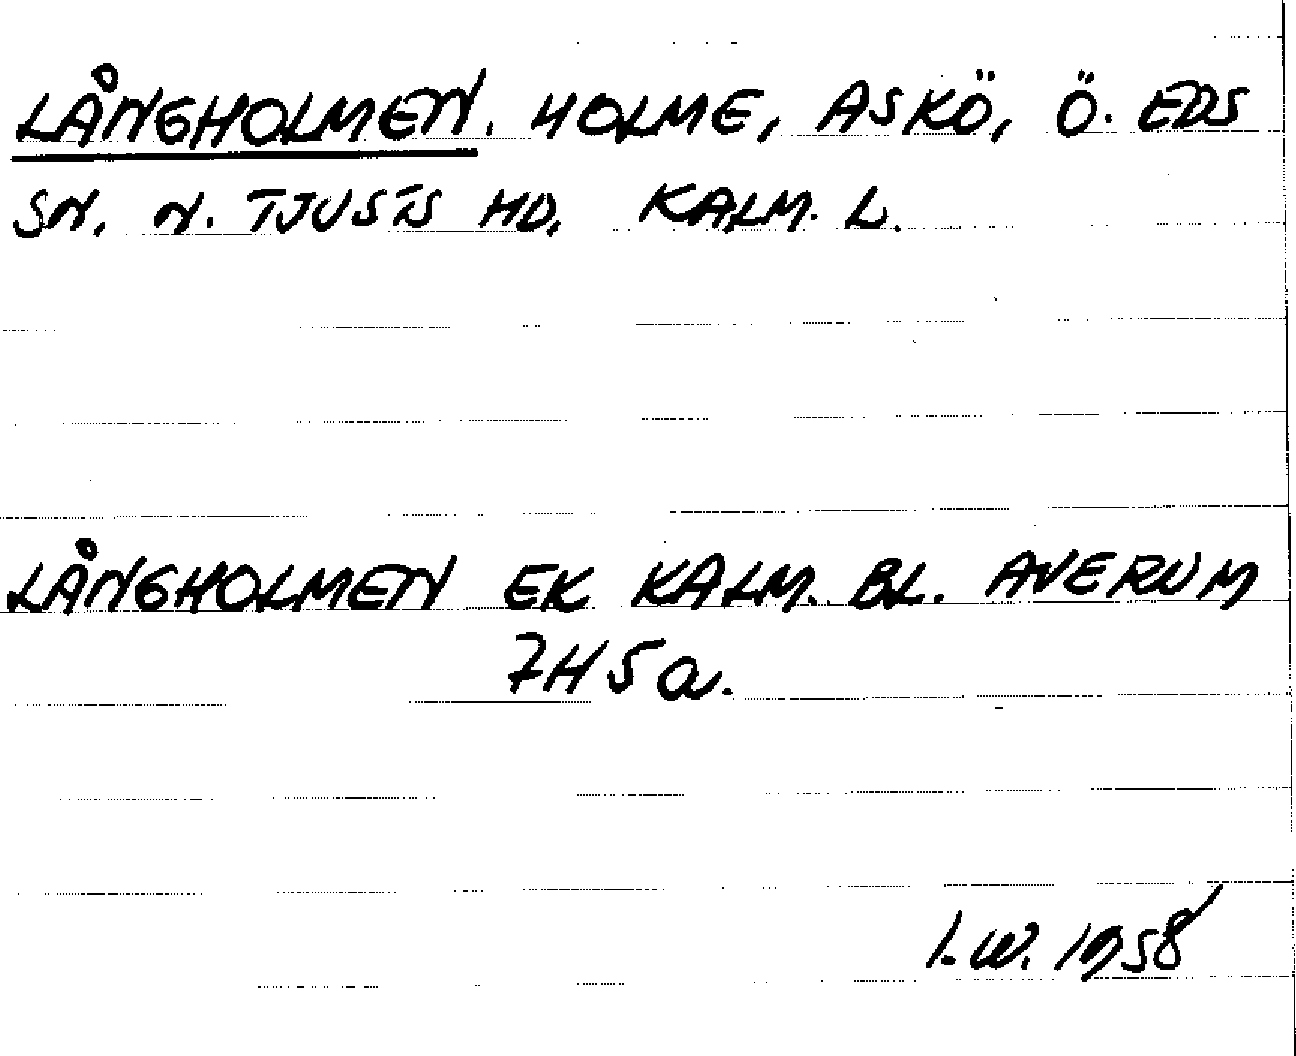 LÅNGHOLMEN. HOLME, ASKÖ, Ö. EDS
SN. N. TJUSTS HD. KALM. L.
LÅNGHOLMEN EK KALM. BL. AVERUM
7H5a.
I.W. 1958